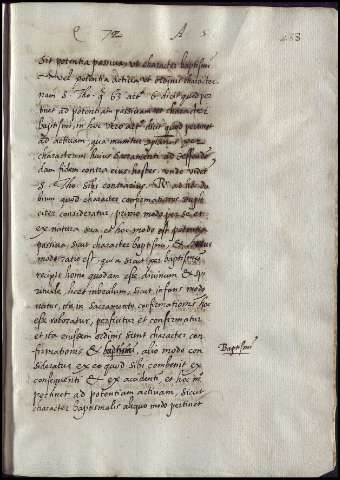 Q 72 A 5
488
sit potentia passiva, ut character baptismi
vel potentia activa ut ordinis character
nam S. Tho. q 63 art. 6 dicit quod per
tinet ad potentiam passivam ut character
baptismi, in hoc vero art. dicit quod pertinet
ad activam, qua munitur per
characterem huius sacramenti ad
dam fidem contra eius hostes unde videt
S. Tho. sibi contrarius. R ad hoc du
bium quod character confirmationis dupli
citer consideratur, primo modo per se et
ex natura sua et hoc modo est potentia
passiva sicut character baptismi, &
modo ratio est, quia sicut per baptismum
recipit homo quodam esse divinum & spi
rituale, licet imbecillum, sicut infans modo
natus, sic in Sacramento confirmationis hoc
esse roboratur, perficitur et confirmatur
et ita eiusdem ordinis sunt character con
firmationis & baptismi, alio modo con
sideratur ex eo quod sibi convenit ex
consequenti & ex accidenti et hoc m
pertinet ad potentiam activam, sicut
character baptismalis aliquo modo pertinet
Baptismi